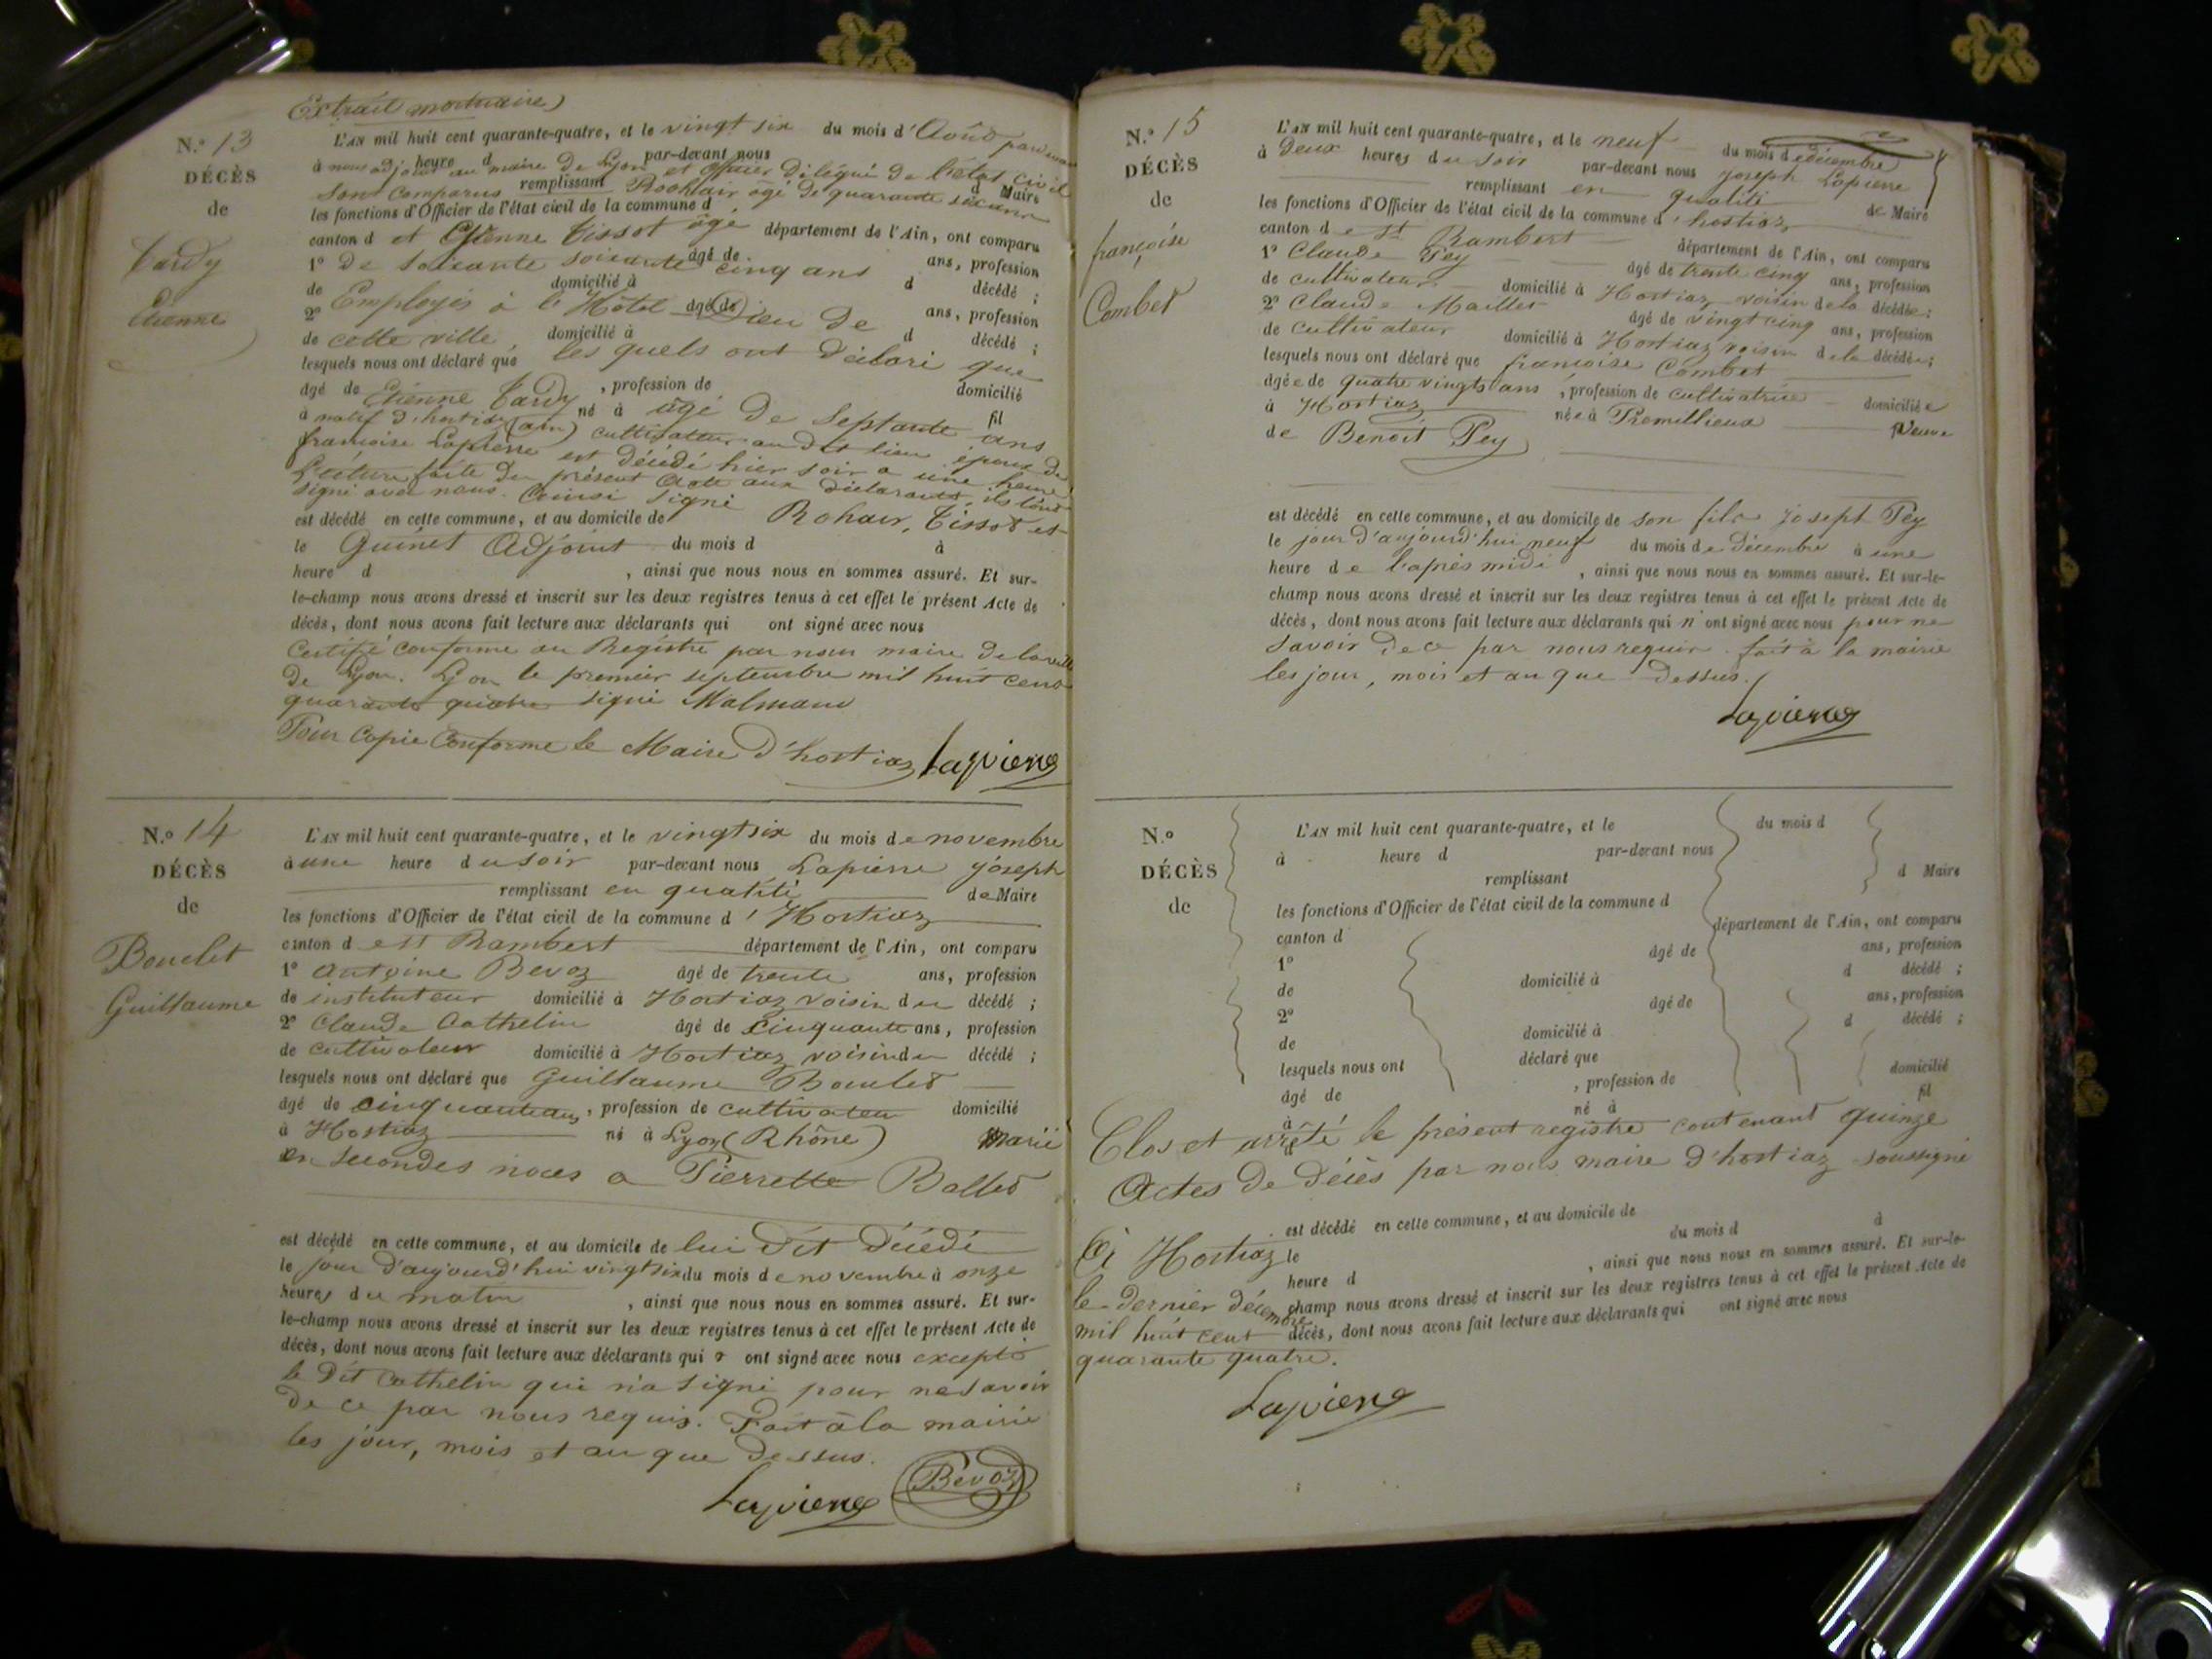 Extrait mortuaire
N.o 13
DÉCÈS
de
Tardy
Etienne
L'AN mil huit cent quarante-quatre, et le vingt six du mois d'Août par devant
à heure d par-devant nous
nous adjoint au maire de Lyon et officier délégué de l'état civil
sont comparus Rochair agé de quarante six ans
remplissant d Maire
les fonctions d'Officier de l'état civil de la commune d
canton d et Etienne Tissot agé département de l'Ain, ont comparu
1° de soixante soixante cinq ans âgé de ans, profession
de domicilié à d décédé ;
2° Employés à l'Hôtel Dieu de âgé de ans, profession
de cette ville, domicilié à d décédé ;
lesquels nous ont déclaré que les quels ont déclaré que
âgé de Etienne Tardy , profession de domicilié
à né à âgé de septante ans fil
natif d'hortiaz (ain) cultivateur au dit lieu époux de
françoise Lapierre est décédé hier soir a une heure
Lecture faite du présent acte aux déclarants, ils l'ont
signé avec nous. Ainsi signé Rohair, Tissot et
est décédé en cette commune, et au domicile de
le Guinet Adjoint du mois d à
heure d , ainsi que nous nous en sommes assuré. Et sur-
le-champ nous avons dressé et inscrit sur les deux registres tenus à cet effet le présent Acte de
décès, dont nous avons fait lecture aux déclarants qui ont signé avec nous
Certifié conforme au Régistre par nous maire de la ville
de Lyon. Lyon le premier septembre mil huit cent
quarante quatre signé
Pour Copie Conforme le Maire d'hortiaz Lapierre
N.o 14
DÉCÈS
de
Bouclet
Guillaume
L'AN mil huit cent quarante-quatre, et le vingt six du mois de novembre
à une heure du soir par-devant nous Lapierre joseph
remplissant en qualité de Maire
les fonctions d'Officier de l'état civil de la commune d'Hortiaz
canton de st Rambert département de l'Ain, ont comparu
1° Antoine Bevoz âgé de trente ans, profession
de instituteur domicilié à Hortiaz voisin du décédé ;
2° Claude Cathelin âgé de cinquante ans, profession
de cultivateur domicilié à Hortiaz voisin du décédé ;
lesquels nous ont déclaré que Guillaume Bouclet
âgé de cinquante ans, profession de cultivateur domicilié
à Hortiaz né à Lyon (Rhône) Marié
en secondes noces a Pierrette Ballet
est décédé en cette commune, et au domicile de lui dit décédé
le jour d'aujourd'hui vingt six du mois de novembre à onze
heures du matin , ainsi que nous nous en sommes assuré. Et sur-
le-champ nous avons dressé et inscrit sur les deux registres tenus à cet effet le présent Acte de
décès, dont nous avons fait lecture aux déclarants qui ont signé avec nous excepté
le dit Cathelin qui n'a signé pour ne savoir
de ce par nous requis. Fait à la mairie
les jour, mois et an que dessus.
Lapierre Bevoz
N.o 15
DÉCÈS
de
françoise
Combet
L'AN mil huit cent quarante-quatre, et le neuf du mois de décembre
à deux heures du soir par-devant nous joseph Lapierre
remplissant en qualité de Maire
les fonctions d'Officier de l'état civil de la commune d'hortiaz
canton de st Rambert département de l'Ain, ont comparu
1° Claude Pey âgé de trente cinq ans, profession
de cultivateur domicilié à Hortiaz voisin de la décédée ;
2° Claude Maillet âgé de vingt cinq ans, profession
de cultivateur domicilié à Hortiaz voisin de la décédée ;
lesquels nous ont déclaré que françoise Combet
âgée de quatre vingts ans , profession de cultivatrice domiciliée
à Hortiaz née à Premillieux Veuve
de Benoit Pey
est décédé en cette commune, et au domicile de son fils joseph Pey
le jour d'aujourd'hui neuf du mois de décembre à une
heure de l'après midi , ainsi que nous nous en sommes assuré. Et sur-le-
champ nous avons dressé et inscrit sur les deux registres tenus à cet effet le présent Acte de
décès, dont nous avons fait lecture aux déclarants qui n'ont signé avec nous pour ne
savoir de ce par nous requis fait à la mairie
les jour, mois et an que dessus.
Lapierre
N.o
DÉCÈS
de
L'AN mil huit cent quarante-quatre, et le du mois d
à heure d par-devant nous
remplissant d Maire
les fonctions d'Officier de l'état civil de la commune d
canton d département de l'Ain, ont comparu
1° âgé de ans, profession
de domicilié à d décédé ;
2° âgé de ans, profession
de domicilié à d décédé ;
lesquels nous ont déclaré que
âgé de , profession de domicilié
à né à fil
d
Clos et arrêté le présent registre contenant quinze
Actes de décès par nous maire d'hortiaz soussigné
est décédé en cette commune, et au domicile de
A Hortiaz le du mois d à
heure d , ainsi que nous nous en sommes assuré. Et sur-le-
le dernier décembre champ nous avons dressé et inscrit sur les deux registres tenus à cet effet le présent Acte de
mil huit cent décès, dont nous avons fait lecture aux déclarants qui ont signé avec nous
quarante quatre.
Lapierre